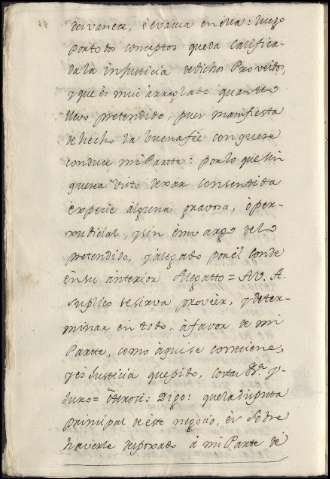 desvanece, evacua en ella: luego
por todos conceptos queda califica-
da la injusticia de dichos Proveidos,
y que es mui arreglado quanto
llevo pretendido, pues manifiesta
de hecho la buena fee con que se
conduce mi Parte: por lo que sin
que sea visto dexar consentida
especie alguna gravosa, ò per-
judicial, y sin embargo de lo
pretendido, y alegado por el Conde
en su anterior Alegatto = A V. A.
suplico se sirva proveer, y deter-
minar en todo, à favor de mi
Parte, como aqui se contiene,
y es Justicia que pido, costas &a y
Juro = Otrosi: Digo: que la disputa
principal de este negocio, es sobre
haverse despojado à mi Parte de